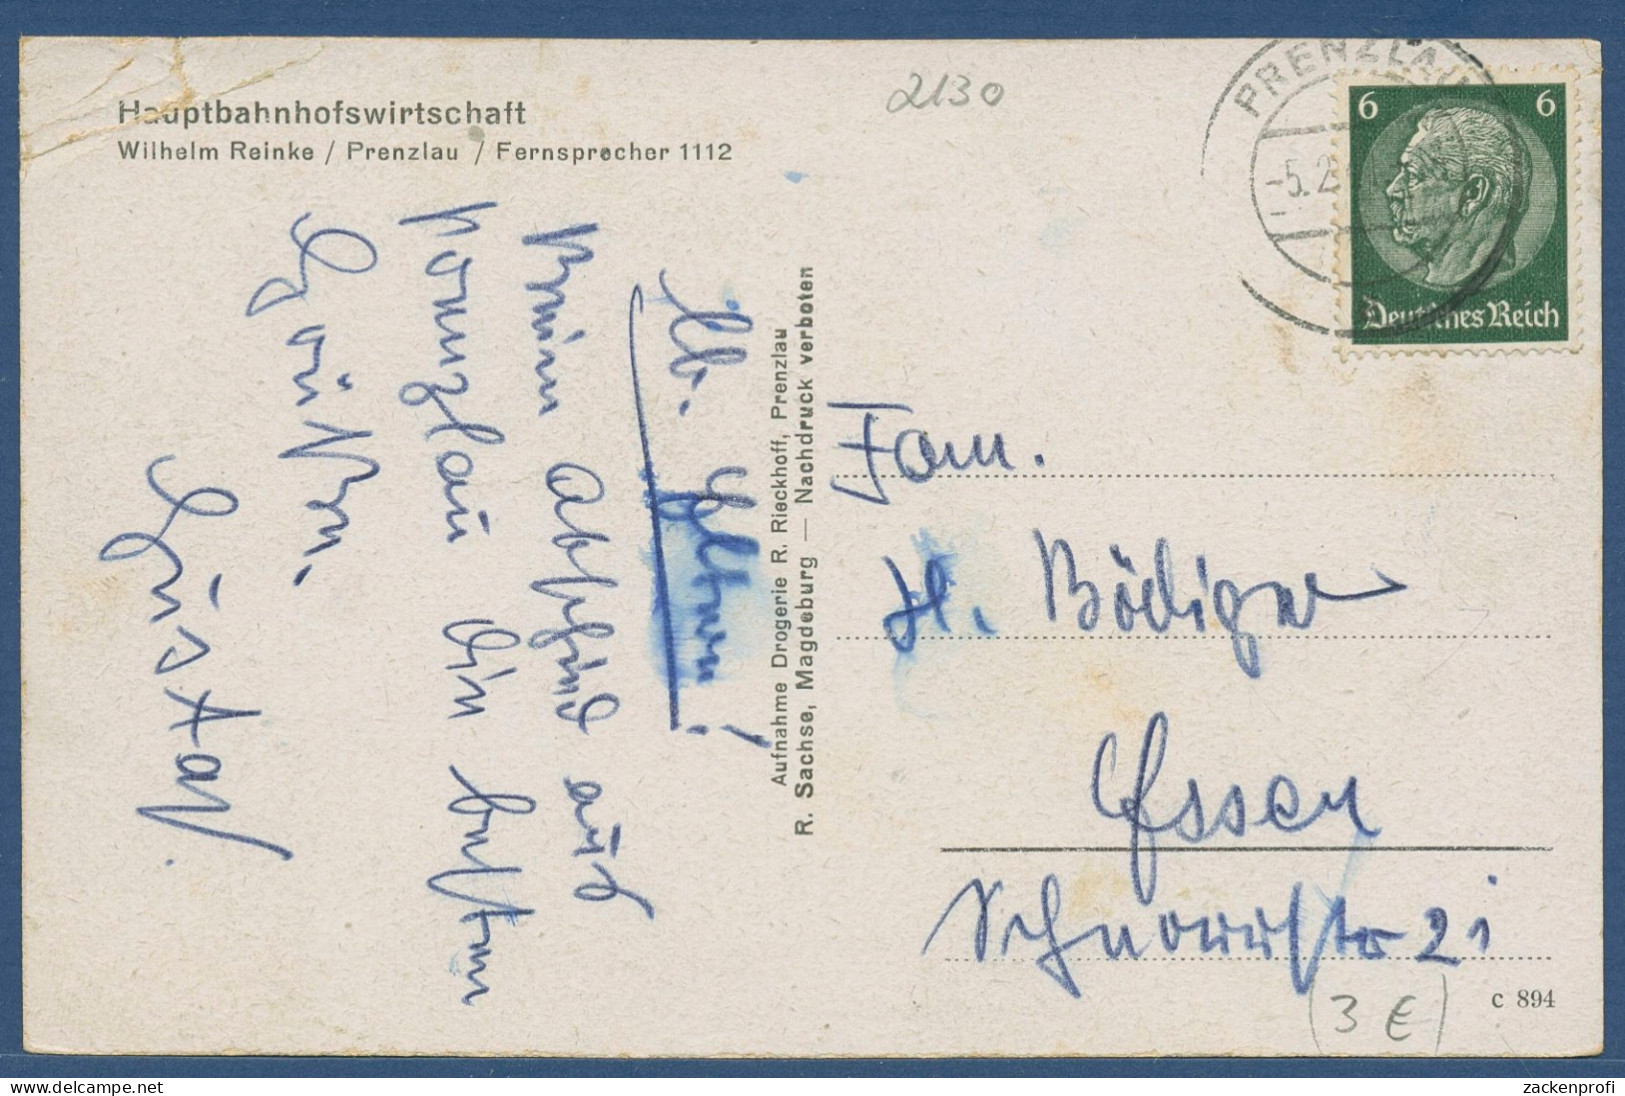 Hauptbahnhofswirtschaft
Wilhelm Reinke / Prenzlau / Fernsprecher 1112
2130
PRENZLAU
-5.2.
6 6
Deutsches Reich
Lb. Eltern!
Beim Abschied aus
Prenzlau die besten
Grüßen.
Gustav.
Aufnahme Drogerie R. Rieckhoff, Prenzlau
R. Sachse, Magdeburg — Nachdruck verboten
Fam.
H. Bödiger
Essen
21
(3 €)
c 894
zackenprofi
www.delcampe.net